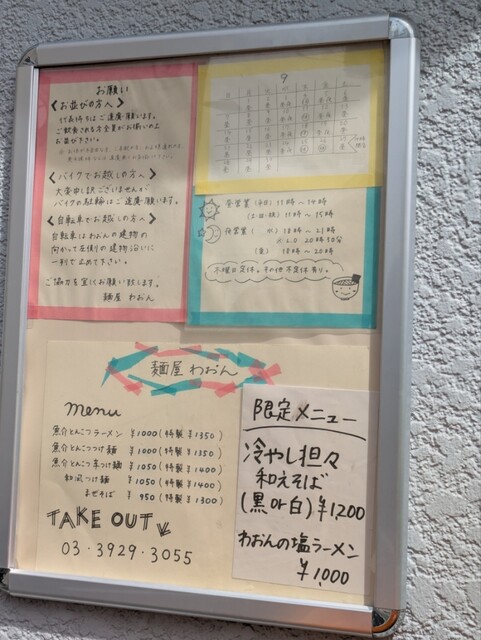 お願い
<お並びの方へ>
代表待ちはご遠慮願います。
ご飲食される方全員がお揃いの上
お並び下さい。
<バイクでお越しの方へ>
大変申し訳ございませんが
バイクの駐輪はご遠慮願います。
<自転車でお越しの方へ>
自転車はわおんの建物の
向かって左側の建物沿いに
一列で止めて下さい。
ご協力を宜しくお願い致します。
麺屋 わおん
9
日 月 火 水 木 金 土
昼営業(平日) 11時〜14時
(土・日・祝) 11時〜15時
夜営業 (火) 18時〜21時
※L.O 20時30分
(金) 18時〜20時
木曜日定休。その他不定休有り。
麺屋 わおん
menu
魚介とんこつラーメン ¥1000(特製¥1350)
魚介とんこつつけ麺 ¥1000(特製¥1350)
魚介とんこつ辛つけ麺 ¥1050(特製¥1400)
和風つけ麺 ¥1050(特製¥1400)
まぜそば ¥950(特製¥1300)
TAKE OUT
03-3929-3055
限定メニュー
冷やし担々
和えそば
(黒or白)¥1,200
わおんの塩ラーメン
¥1,000